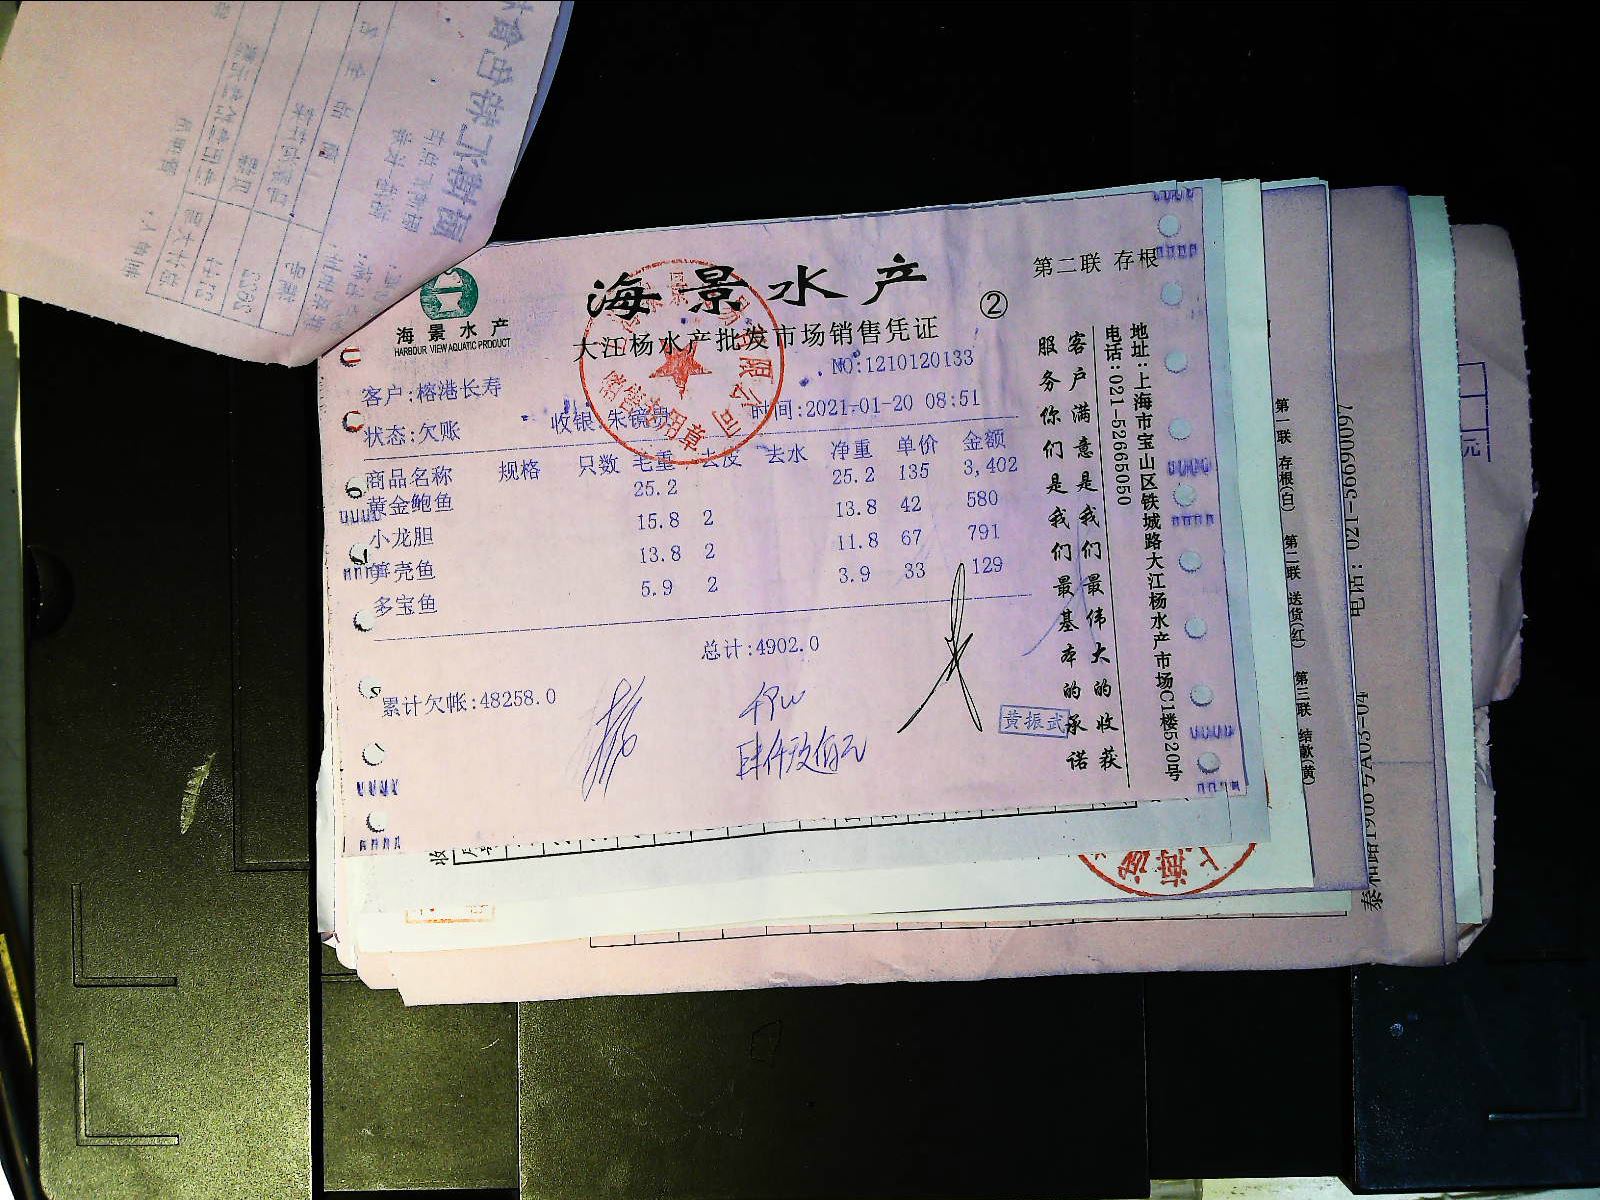 海景水产
HARBOUR VIEW AQUATIC PRODUCT
海景水产
大江杨水产批发市场销售凭证
②
第二联 存根
NO:1210120133
客户:榕港长寿
状态:欠账
收银:朱镜贵
时间:2021-01-20 08:51
商品名称 规格 只数 毛重 去皮 去水 净重 单价 金额
黄金鲍鱼 25.2 25.2 135 3,402
小龙胆 15.8 2 13.8 42 580
笋壳鱼 13.8 2 11.8 67 791
多宝鱼 5.9 2 3.9 33 129
总计:4902.0
累计欠帐:48258.0
肆仟玖佰元
黄振武
服务你们是我们最基本的承诺
客户满意是我们最伟大的收获
电话:021-52665050
地址:上海市宝山区铁城路大江杨水产市场C1楼520号
第一联 存根(白) 第二联 送货(红) 第三联 结款(黄)
电话: 021-56690097